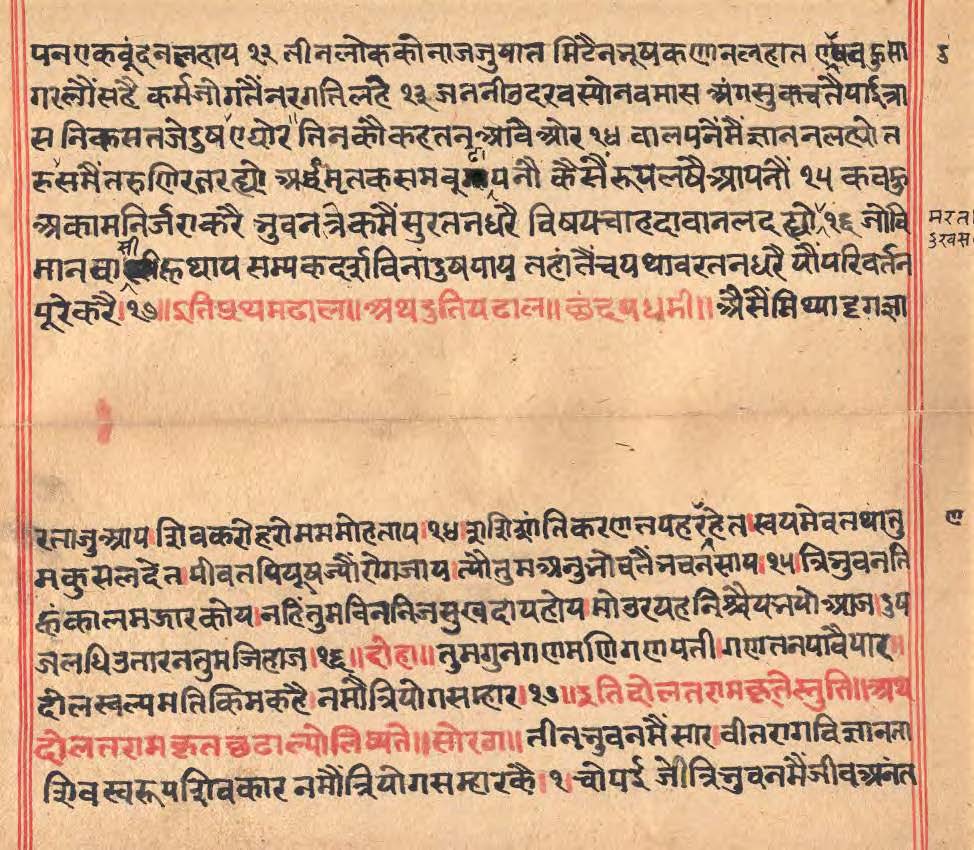 पनएकबूंदनलहाय १२ तीनलोककोनाजजुषात मिटैनभूषकणानलहात एषबहुसा
गरलौंसहै कर्मजोगतैंनरगतिलहै १३ जननीउदरवस्योनवमास अंगसुकचतैंपाईत्रा
स निकसतजेदुषपायेघोर तिनकौकहतनआवैओर १४ बालपनैंमैंज्ञाननलह्यो त
रुसमैंतरुणिरतरह्यो अर्द्धमृतकसमबूढापनौ कैसैंरूपलषैआपनौं १५ कबहु
अकामनिर्जराकरै भुवनत्रकमैंसुरतनधरै विषयचाहदावानलदह्यो १६ जोवि
मरत
दुखस
मानवासीहूथाय सम्यकदर्शविनादुषपाय तहांतैंचयथावरतनधरै यौंपरिवर्तन
पूरेकरै।१७॥इतिप्रथमढाल॥अथदुतियढाल॥छंदपधमी॥ऐसैंमिथ्यादृगज्ञा
रतांजुआप।शिवकरौहरौमममोहताप।१४।शशिशांतिकरणतपहरनहेत।स्वयमेवतथातु
मकुसलदेत।पीवतपियूषज्यौंरोगजाय।त्यौंतुमअनुभोवतैंभवनसाय।१५।त्रिभुवनति
हूंकालमजारकोय।नहिंतुमविननिजसुखदायहोय।मोउरयहनिश्चैयभयोआज।दुष
जलधिउतारनतुमजिहाज।१६॥दोहा॥तुमगुनगणमणिगणपती।गणतनपावैपार॥
दौलस्वल्पमतिकिमकहै।नमौंत्रियोगसम्हार।१७॥इतिदौलतरामकृतस्तुति॥अथ
दौलतरामकृतछढाल्योलिष्यते॥सोरठा॥तीनभुवनमैंसार।वीतरागविज्ञानता
शिवस्वरूपशिवकार नमौंत्रियोगसम्हारकै।१।चोपई जेत्रिभुवनमैंजीवअनंत